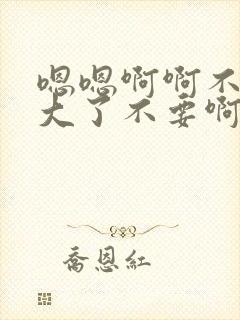 嗯嗯啊啊不
大了不要啊
乔恩红